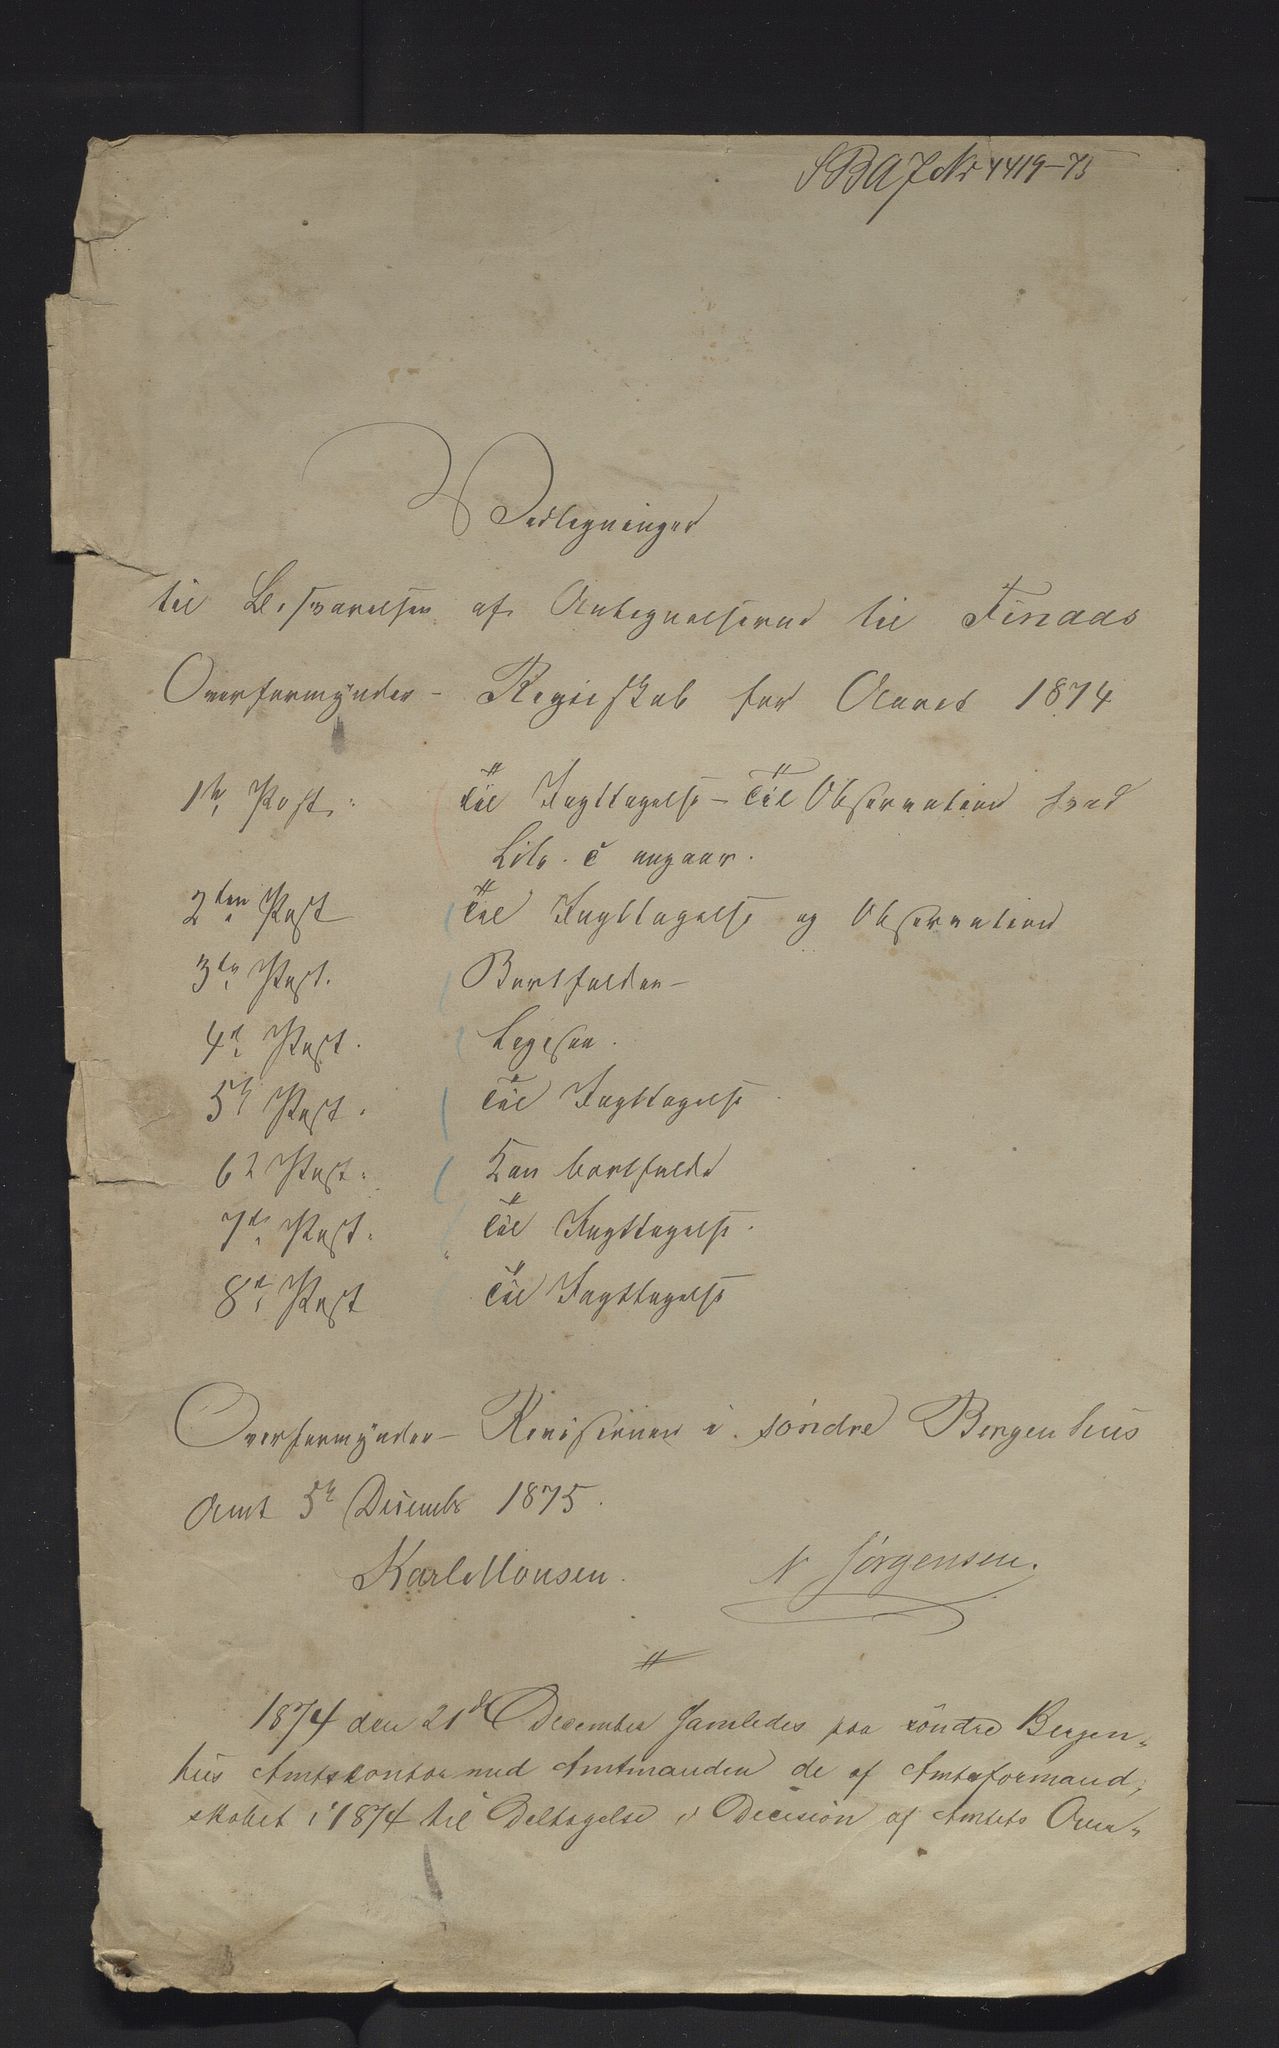 SBA J No 4419-75
Vedtegninger
til Besvarelsen af Antegnelserne til Finaas
Overformynder- Regnskab for Aaret 1874
1ste Post. Til Iagttagelse - Til Observation hvad
Litr. c angaar.
2den Post Til Iagttagelse og Observation
3die Post. Bortfalder-
4de Post. Ligesaa.
5te Post. Til Iagttagelse
6te Post. Kan bortfalde
7de Post. Til Iagttagelse.
8de Post Til Iagttagelse
Overformynder- Revisionen i søndre Bergenhus
Amt 5te Decembr 1875.
Karl Monsen. N Jørgensen.
1874 den 21de December samledes paa søndre Bergen„
hus Amtskontor med Amtmanden de af Amtsformand„
skabet i 1874 til Deltagelse i Decision af Amtets Over„